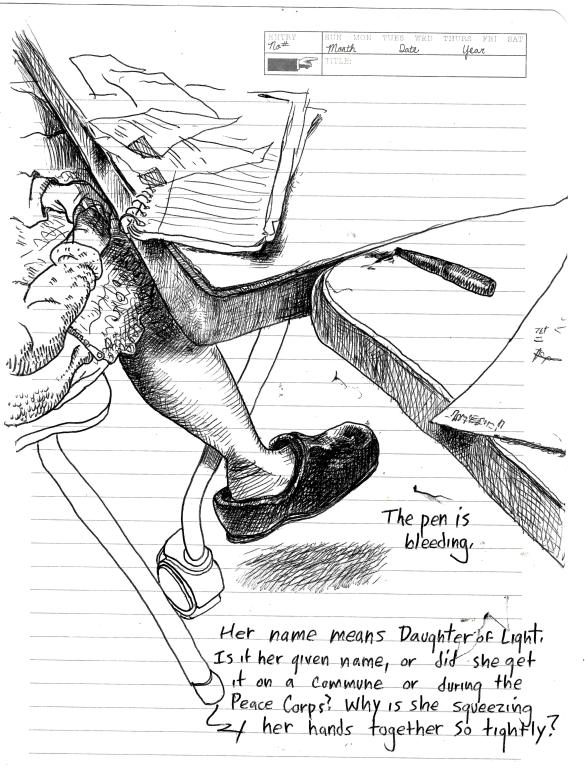 ENTRY SUN MON TUES WED THURS FRI SAT
No# Month Date Year
TITLE:
The pen is
bleeding.
Her name means Daughter of Light.
Is it her given name, or did she get
it on a commune or during the
Peace Corps? Why is she squeezing
her hands together so tightly?